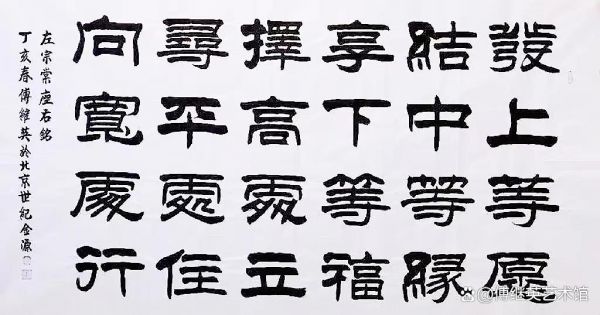 發上等愿
結中等緣
享下等福
擇高處立
尋平處住
向寬處行
左宗棠座右銘
丁亥春傅継英於北京世紀金源
@傅继英艺术馆